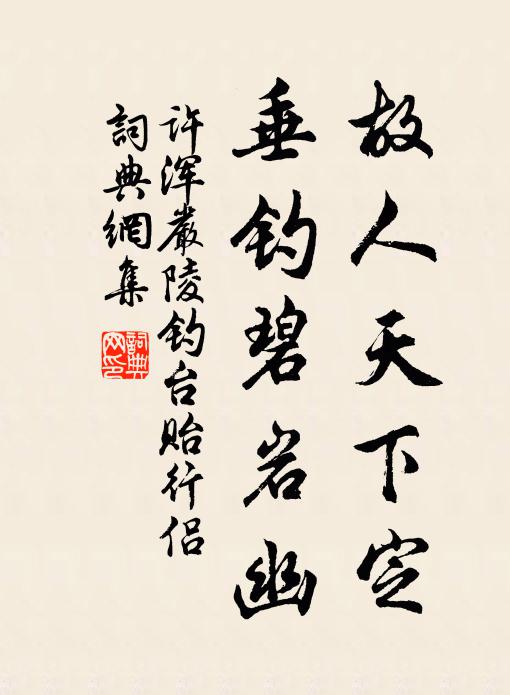 故人天下定
垂钓碧岩幽
许浑嚴陵钓台贻行侣
詞典網集
詞典網印